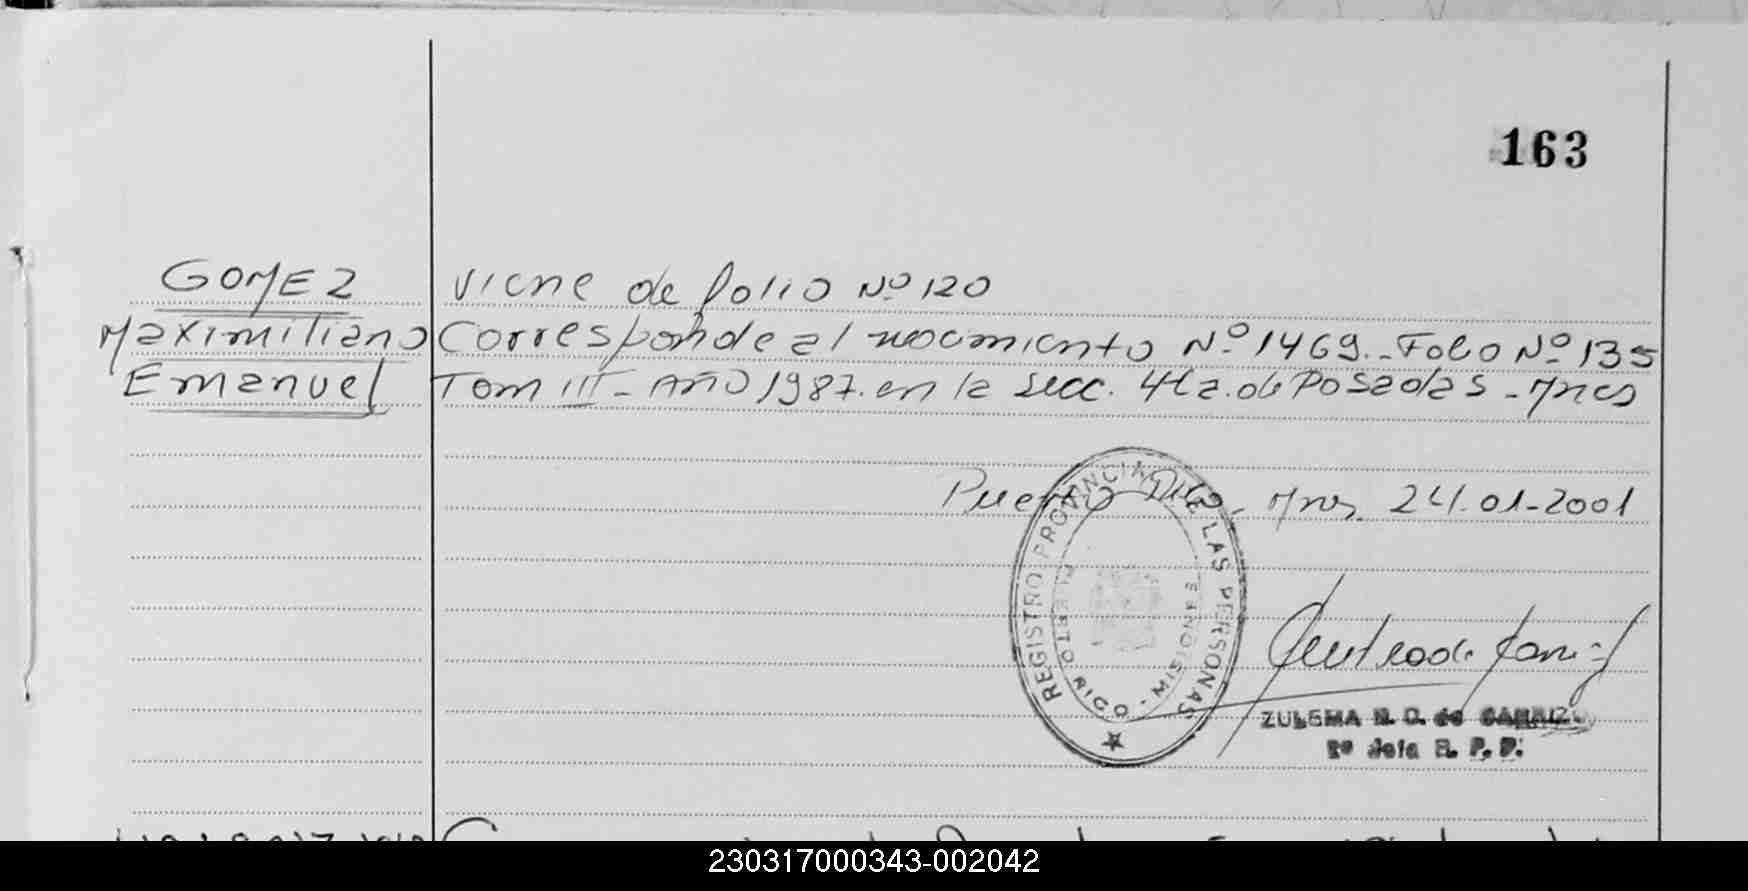 163
GOMEZ
Maximiliano
Emanuel
Viene de folio Nº 120
Corresponde al nacimiento Nº 1469.- Folio Nº 135
Tom III - Año 1987. en la secc. 4ta. de Posadas - Mnes
Puerto Rico - Mnes. 24.01-2001
REGISTRO PROVINCIAL DE LAS PERSONAS
PUERTO RICO - MISIONES
ZULEMA N. C. de CARRIZO
2º Jefa R. P. P.
230317000343-002042